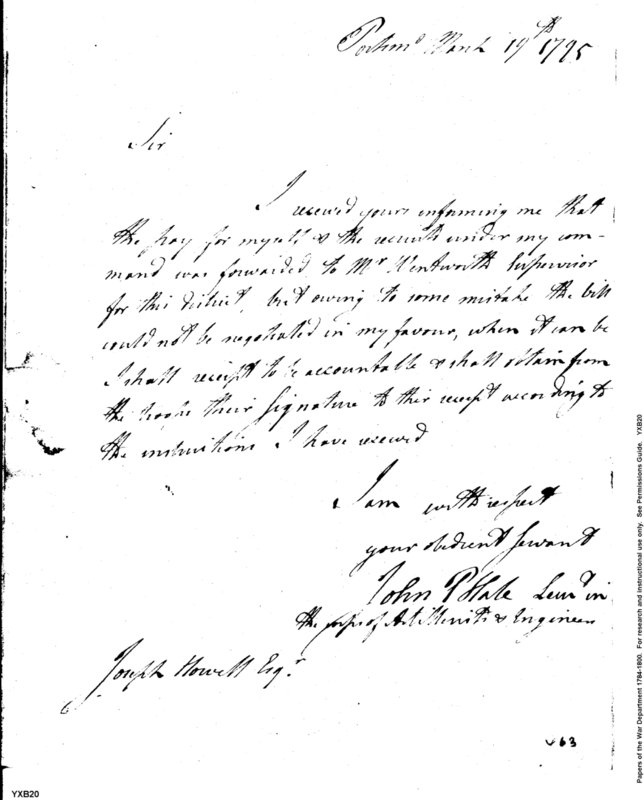 Portsmo March 19th 1795
Sir
I receved yours informing me that
the pay for myself & the recruits under my com-
mand was forwarded to Mr Wentworth Supervisor
for this district, but owing to some mistake the bill
could not be negotiated in my favour, when it can be
I shall receipt to be accountable & shall obtain from
the troops their signature to their receipt according to
the instructions I have receved
I am with respect
your obedient servant
John P Hale Leiut in
the corps of Artillerists & Engineers
Joseph Howell Esqr
63
YXB20
Papers of the War Department 1784-1800. For research and instructional use only. See Permissions Guide. YXB20